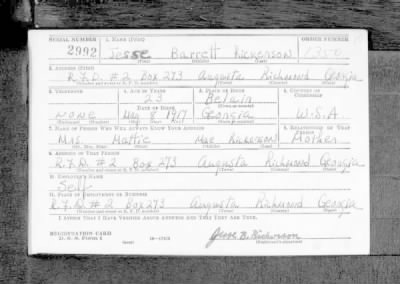 SERIAL NUMBER 1. NAME (Print) ORDER NUMBER
2992 Jesse Barrett Rickerson 1350
(First) (Middle) (Last)
2. ADDRESS (Print)
R.F.D. #2 Box 273 Augusta Richmond Georgia
(Number and street or R. F. D. number) (Town) (County) (State)
3. TELEPHONE 4. AGE IN YEARS 5. PLACE OF BIRTH 6. COUNTRY OF CITIZENSHIP
23
DATE OF BIRTH
None 8 1917 Georgia U.S.A.
(Exchange) (Number) (Mo.) (Day) (Yr.) (State or country)
7. NAME OF PERSON WHO WILL ALWAYS KNOW YOUR ADDRESS 8. RELATIONSHIP OF THAT PERSON
Mrs. Mattie Mae Rickerson Mother
(Mr., Mrs., Miss) (First) (Middle) (Last)
9. ADDRESS OF THAT PERSON
R.F.D. #2 Box 273 Augusta Richmond Georgia
(Number and street or R. F. D. number) (Town) (County) (State)
10. EMPLOYER'S NAME
Self
11. PLACE OF EMPLOYMENT OR BUSINESS
R.F.D. #2 Box 273 Augusta Richmond Georgia
(Number and street or R. F. D. number) (Town) (County) (State)
I AFFIRM THAT I HAVE VERIFIED ABOVE ANSWERS AND THAT THEY ARE TRUE.
REGISTRATION CARD
D. S. S. Form 1 (over) 16—17105
Jesse B. Rickerson
(Registrant's signature)